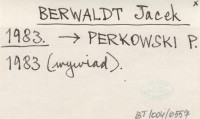 BERWALDT Jacek x
1983. → PERKOWSKI P.
1983 (wywiad).
BJ/004/0557